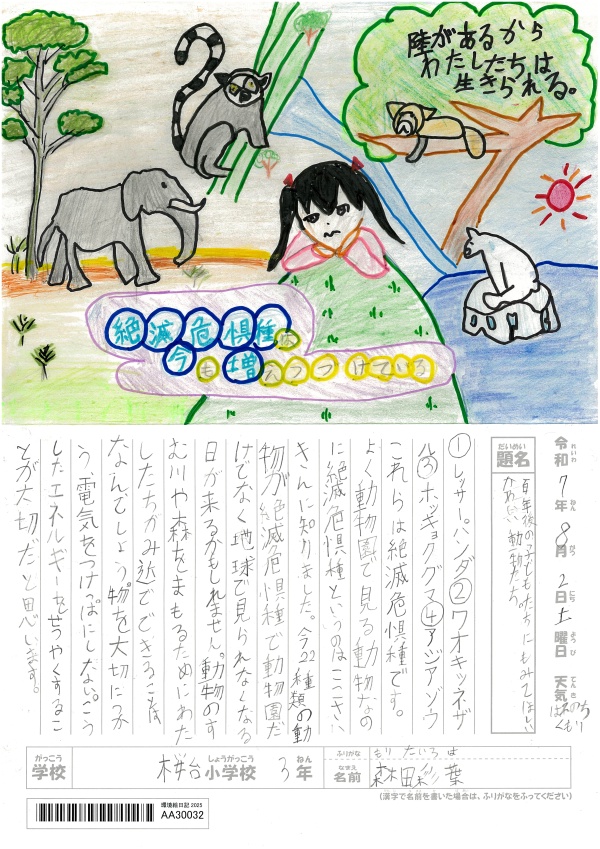 陸があるから
わたしたちは
生きられる。
絶滅危惧種は
今も増えつづけている
令和7年8月2日土曜日 天気 はれのち
くもり
れいわ ねん がつ にち ようび てんき
だいめい
題名
百年後の子どもたちにもみてほしい
かわいい動物たち
①レッサーパンダ②ワオキツネザ
ル③ホッキョクグマ④アジアゾウ
これらは絶滅危惧種です。
よく動物園で見る動物なの
に絶滅危惧種というのはごくさい
きんに知りました。今22種類の動
物が絶滅危惧種で動物園だ
けでなく地球で見られなくなる
日が来るかもしれません。動物のす
む川や森をまもるためにわた
したちがみ近でできることは
なんでしょう。物を大切につか
う、電気をつけっぱにしない。こう
したエネルギーをせつやくするこ
とが大切だと思います。
がっこう しょうがっこう ねん
学校 桜台小学校 3年
ふりがな もりたいろは
なまえ
名前 森田彩葉
(漢字で名前を書いた場合は、ふりがなをふってください)
環境絵日記 2025
AA30032